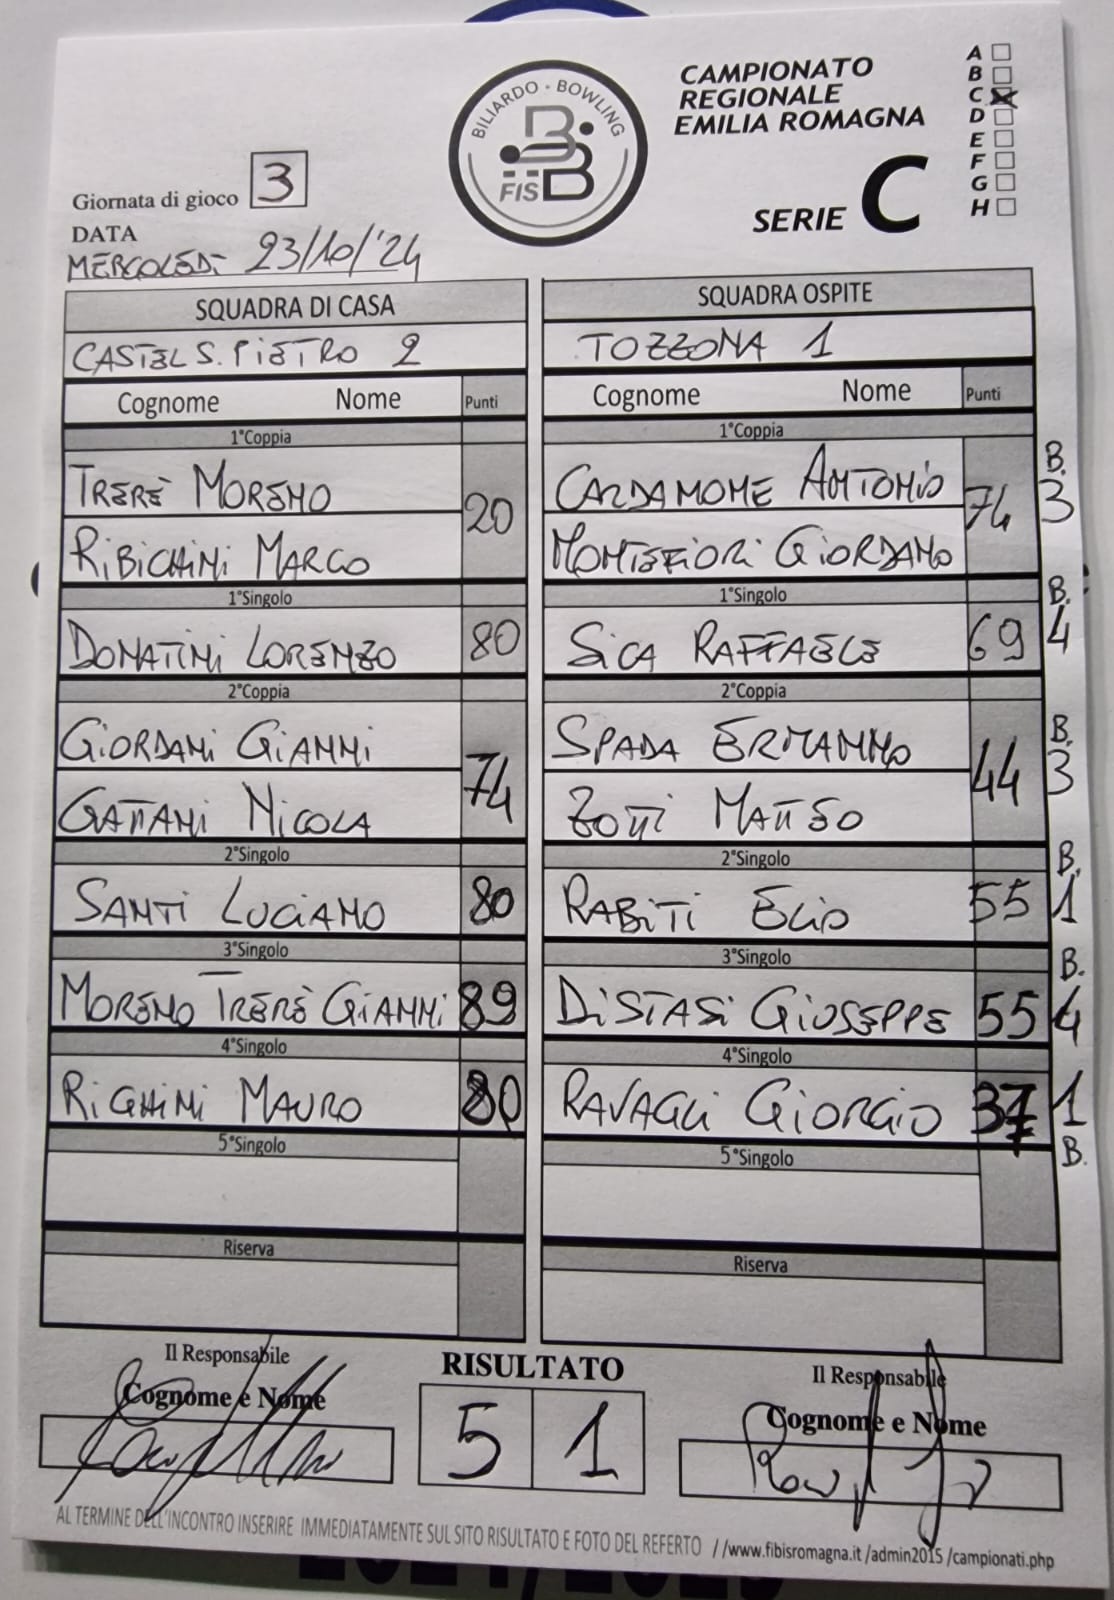 BILIARDO • BOWLING
FISBB
CAMPIONATO
REGIONALE
EMILIA ROMAGNA
SERIE C
A
B
C X
D
E
F
G
H
Giornata di gioco 3
DATA
MERCOLEDI 23/10/'24
SQUADRA DI CASA
CASTEL S. PIETRO 2
Cognome Nome Punti
1°Coppia
TRERÈ MORENO 20
RIBICHINI MARCO
1°Singolo
DONATINI LORENZO 80
2°Coppia
GIORDANI GIANNI 74
GATTANI NICOLA
2°Singolo
SANTI LUCIANO 80
3°Singolo
MORENO TRERÈ GIANNI 89
4°Singolo
RIGHINI MAURO 80
5°Singolo
Riserva
SQUADRA OSPITE
TOZZONA 1
Cognome Nome Punti
1°Coppia B.
CARDAMONE ANTONIO 74 3
MONTEFIORI GIORDANO
1°Singolo B.
SICA RAFFAELE 69 4
2°Coppia B.
SPADA ERMANNO 44 3
ZOTTI MATTEO
2°Singolo B.
RABITI ELIO 55 1
3°Singolo B.
DISTASI GIUSEPPE 55 4
4°Singolo
RAVAGLI GIORGIO 37 1
5°Singolo B.
Riserva
Il Responsabile
Cognome e Nome
RISULTATO
5 1
Il Responsabile
Cognome e Nome
AL TERMINE DELL'INCONTRO INSERIRE IMMEDIATAMENTE SUL SITO RISULTATO E FOTO DEL REFERTO //www.fibisromagna.it /admin2015 /campionati.php